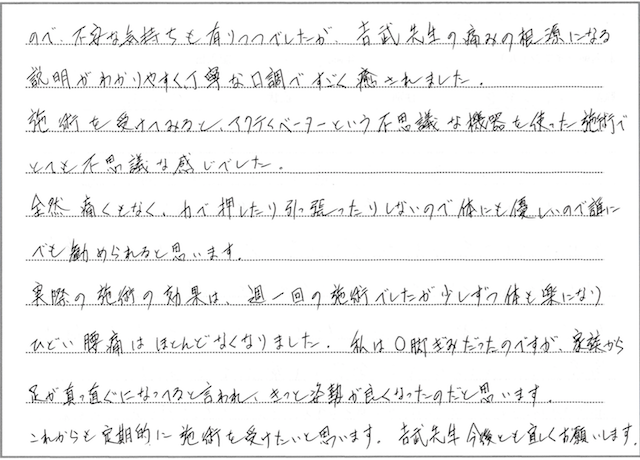 ので、不安な気持ちも有りつつでしたが、吉武先生の痛みの根源になる
説明がわかりやすく、丁寧な口調ですごく癒されました。
施術を受けてみると、アクティベーターという不思議な機器を使った施術で
とても不思議な感じでした。
全然痛くもなく、力で押したり引っ張ったりしないので体にも優しいので誰に
でも勧められると思います。
実際の施術の効果は、週一回の施術でしたが少しずつ体も楽になり
ひどい腰痛はほとんどなくなりました。私はO脚ぎみだったのですが、家族から
足が真っ直ぐになってると言われ、きっと姿勢が良くなったのだと思います。
これからも定期的に施術を受けたいと思います。吉武先生今後とも宜しくお願いします。